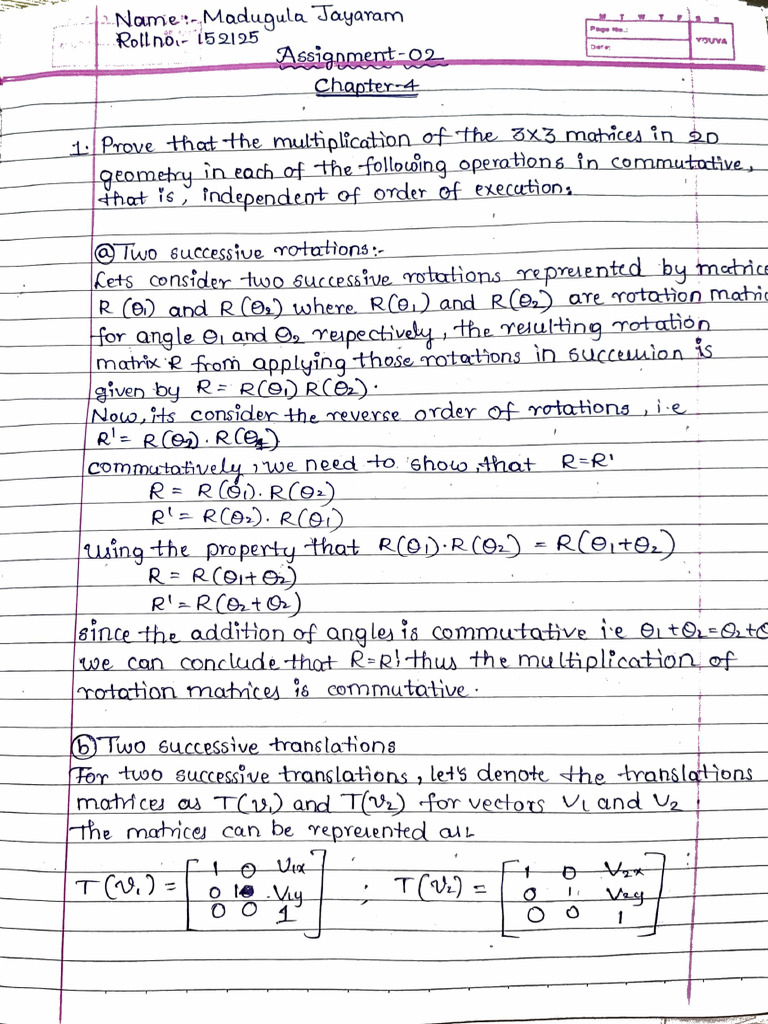 Name:- Madugula Jayaram
Roll no:- 152125
M T W T F S S
Page No.:
Date:
YOUVA
Assignment-02
Chapter-4
1. Prove that the multiplication of the 3x3 matrices in 2D
geometry in each of the following operations in commutative,
that is, independent of order of execution.
(a) Two successive rotations:-
Lets consider two successive rotations represented by matrice
R (θ1) and R (θ2) where R(θ1) and R(θ2) are rotation matric
for angle θ1 and θ2 respectively, the resulting rotation
matrix R from applying those rotations in succession is
given by R = R(θ1) R(θ2).
Now, its consider the reverse order of rotations, i.e
R' = R(θ2). R(θ1)
commutatively, we need to show, that R=R'
R = R(θ1). R(θ2)
R' = R(θ2). R(θ1)
Using the property that R(θ1).R(θ2) = R(θ1+θ2)
R = R(θ1+θ2)
R' = R(θ2+θ2)
since the addition of angles is commutative i.e θ1+θ2=θ2+θ
we can conclude that R=R' thus the multiplication of
rotation matrices is commutative.
(b) Two successive translations
For two successive translations, let's denote the translations
matrices as T(v1) and T(v2) for vectors V1 and V2
The matrices can be represented as
T(v1) = [ 1 0 V1x ; T(v2) = [ 1 0 V2x
0 1 V1y 0 1 V2y
0 0 1 ] 0 0 1 ]